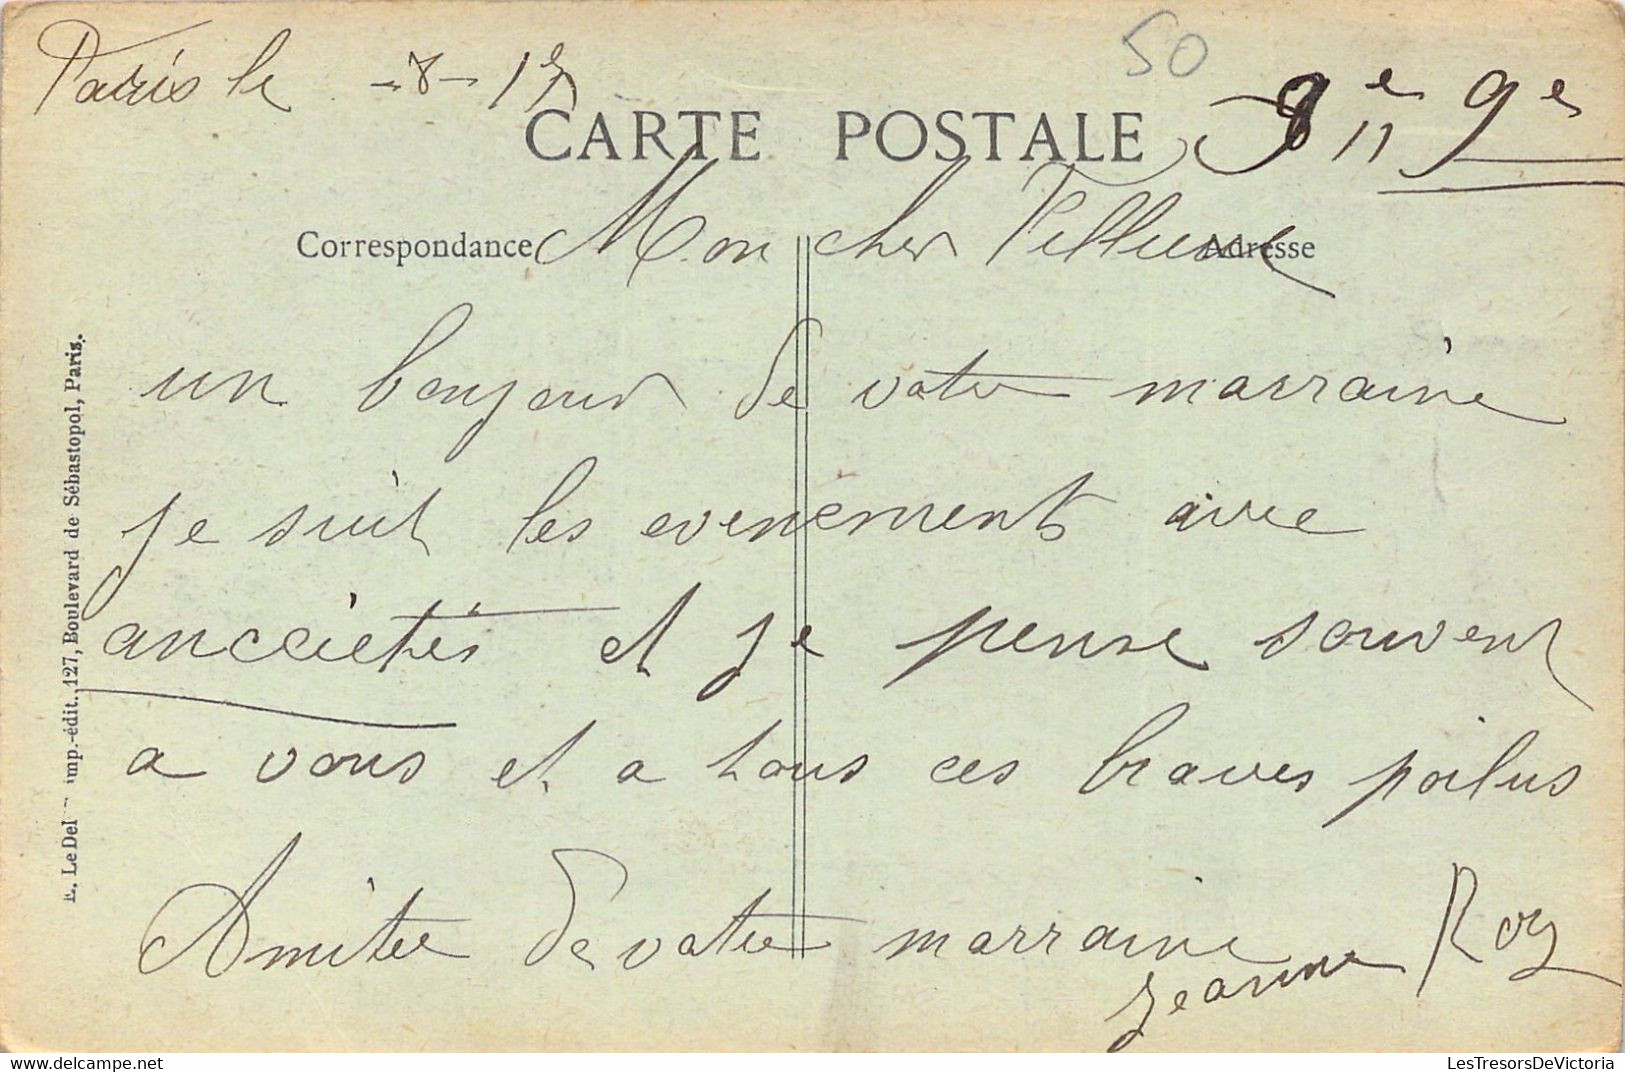 Paris le -8-17
50
CARTE POSTALE
11e 9e
Correspondance
Adresse
Mon cher
un bonjour de votre marraine
je suit les evenements avec
anccietés et je pense souvent
a vous et a tous ces braves poilus
Amitée de votre marraine
Jeanne Roy
E. Le Del imp.-édit., 127, Boulevard de Sébastopol, Paris.
LesTresorsDeVictoria